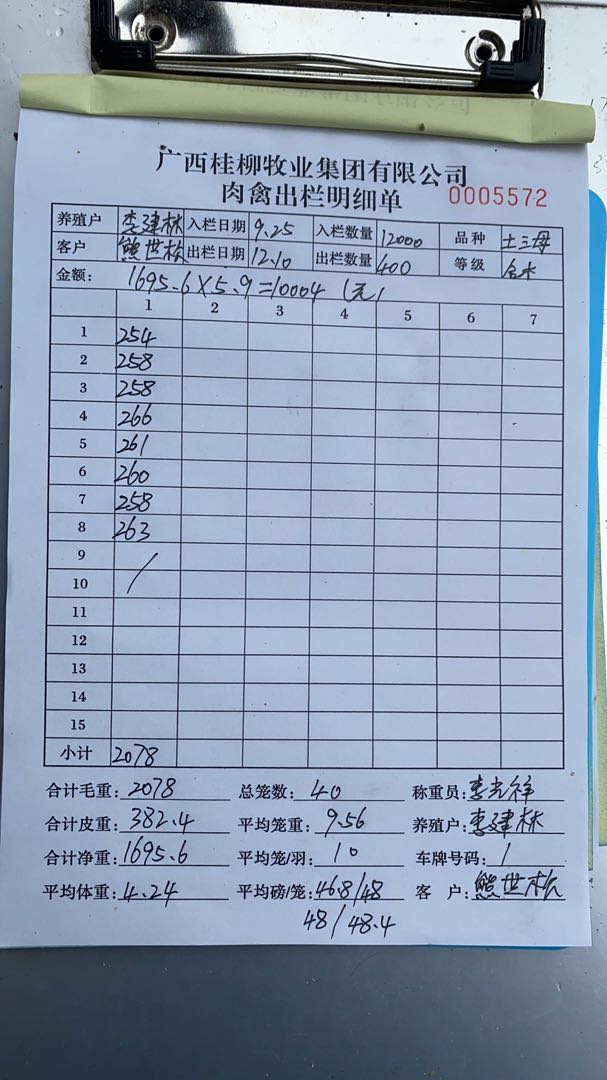 广西桂柳牧业集团有限公司
肉禽出栏明细单 0005572
养殖户 李建林 入栏日期 9.25 入栏数量 12000 品种 土三母
客户 熊世松 出栏日期 12.10 出栏数量 400 等级
金额: 1695.6×5.9=10004 (元)
1 2 3 4 5 6 7
1 254
2 258
3 258
4 266
5 261
6 260
7 258
8 263
9
10 /
11
12
13
14
15
小计 2078
合计毛重: 2078 总笼数: 40 称重员: 李光祥
合计皮重: 382.4 平均笼重: 9.56 养殖户: 李建林
合计净重: 1695.6 平均笼/羽: 10 车牌号码: 1
平均体重: 4.24 平均磅/笼: 46.8/48 客 户: 熊世松
48/48.4